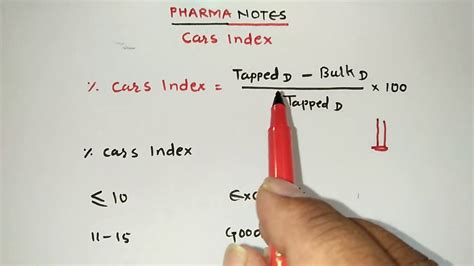 PHARMA NOTES
Cars Index
% Cars Index = Tapped D - Bulk D
Tapped D × 100
% Cars Index
≤ 10
11-15 Good